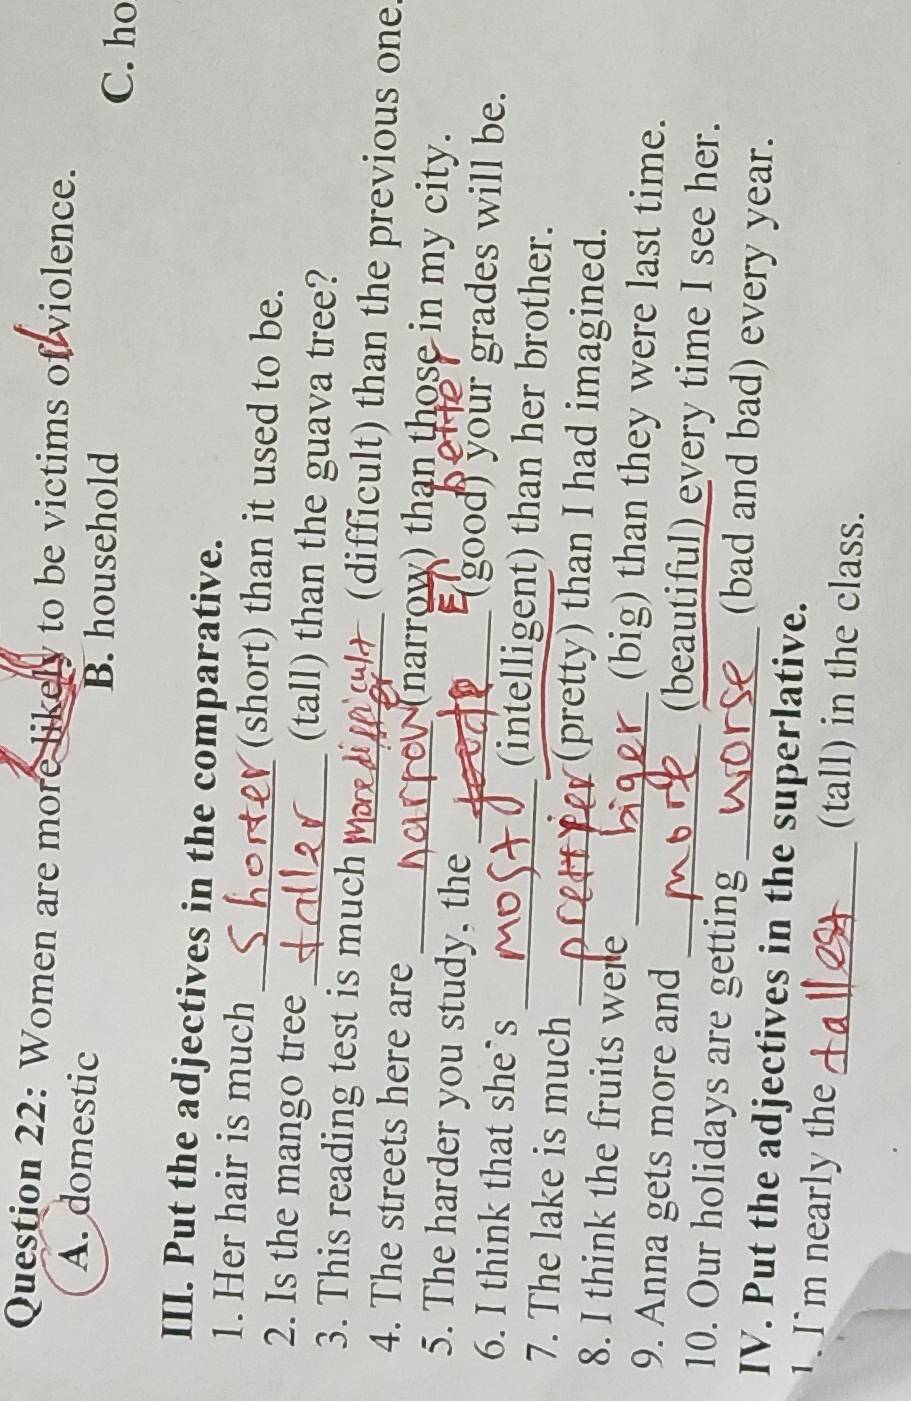 Question 22: Women are more likely to be victims of violence.
A. domestic B. household C. ho
III. Put the adjectives in the comparative.
1. Her hair is much shorter (short) than it used to be.
2. Is the mango tree taller (tall) than the guava tree?
3. This reading test is much more difficult (difficult) than the previous one.
4. The streets here are narrower (narrow) than those in my city.
5. The harder you study, the better (good) your grades will be.
6. I think that she`s most (intelligent) than her brother.
7. The lake is much prettyier (pretty) than I had imagined.
8. I think the fruits were biger (big) than they were last time.
9. Anna gets more and more (beautiful) every time I see her.
10. Our holidays are getting worse (bad and bad) every year.
IV. Put the adjectives in the superlative.
1. I`m nearly the tallest (tall) in the class.